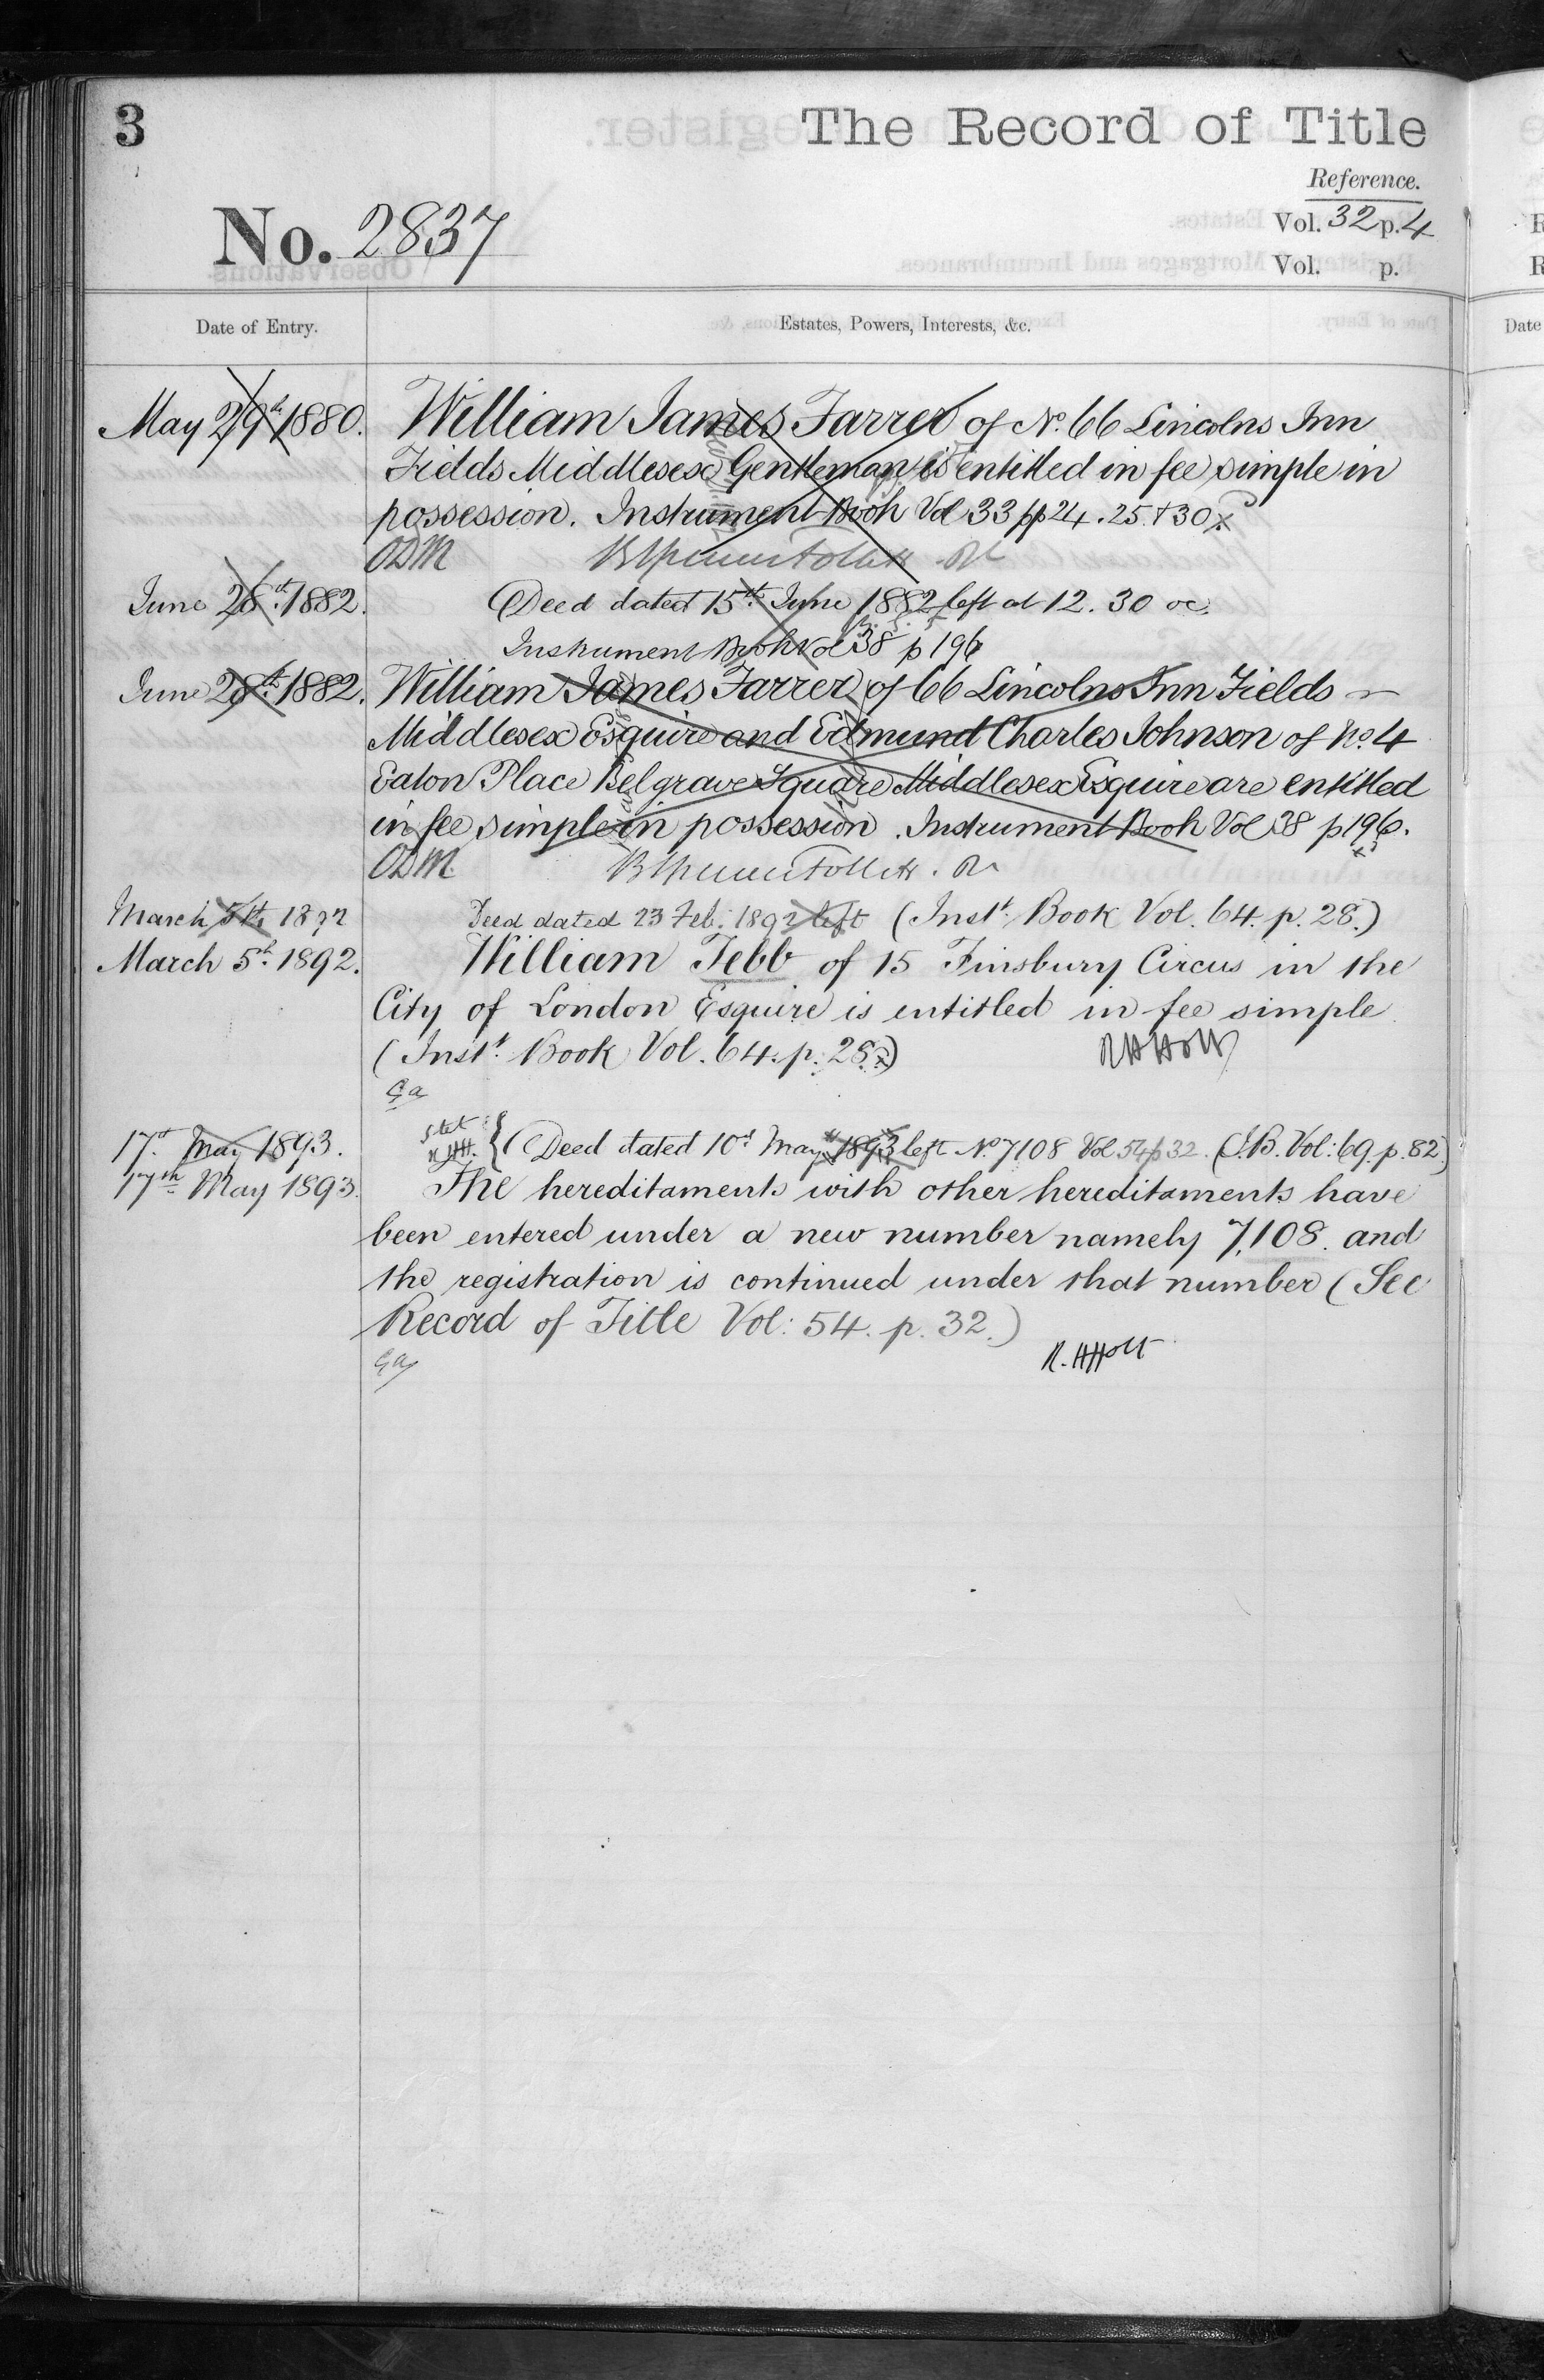 3
The Record of Title
Reference.
No. 2837
Vol. 32 p. 4
Vol. p.
Date of Entry.
Estates, Powers, Interests, &c.
May 29th 1880. William James Farrer of No. 66 Lincolns Inn
Fields Middlesex Gentleman is entitled in fee simple in
possession. Instrument Book Vol 33 pp 24. 25. & 30
ODM
June 28th 1882. Deed dated 15th June 1882 left at 12. 30 oc.
Instrument Book Vol 38 p 196
June 28th 1882. William James Farrer of 66 Lincolns Inn Fields
Middlesex Esquire and Edmund Charles Johnson of No. 4
Eaton Place Belgrave Square Middlesex Esquire are entitled
in fee simple in possession. Instrument Book Vol 38 p 196.
ODM.
March 5th 1892 Deed dated 23 Feb. 1892 left (Instt. Book Vol. 64. p. 28.)
March 5th 1892. William Tebb of 15 Finsbury Circus in the
City of London Esquire is entitled in fee simple
(Instt. Book Vol. 64. p. 28.)
RHHolt
Ga
Stet
RHH.
17th May 1893. Deed dated 10th May 1893 left No. 7108 Vol 54 p 32. (I.B. Vol: 69. p. 82.)
17th May 1893. The hereditaments with other hereditaments have
been entered under a new number namely 7,108. and
the registration is continued under that number (See
Record of Title Vol: 54. p. 32.)
R.HHolt
Ga
Date